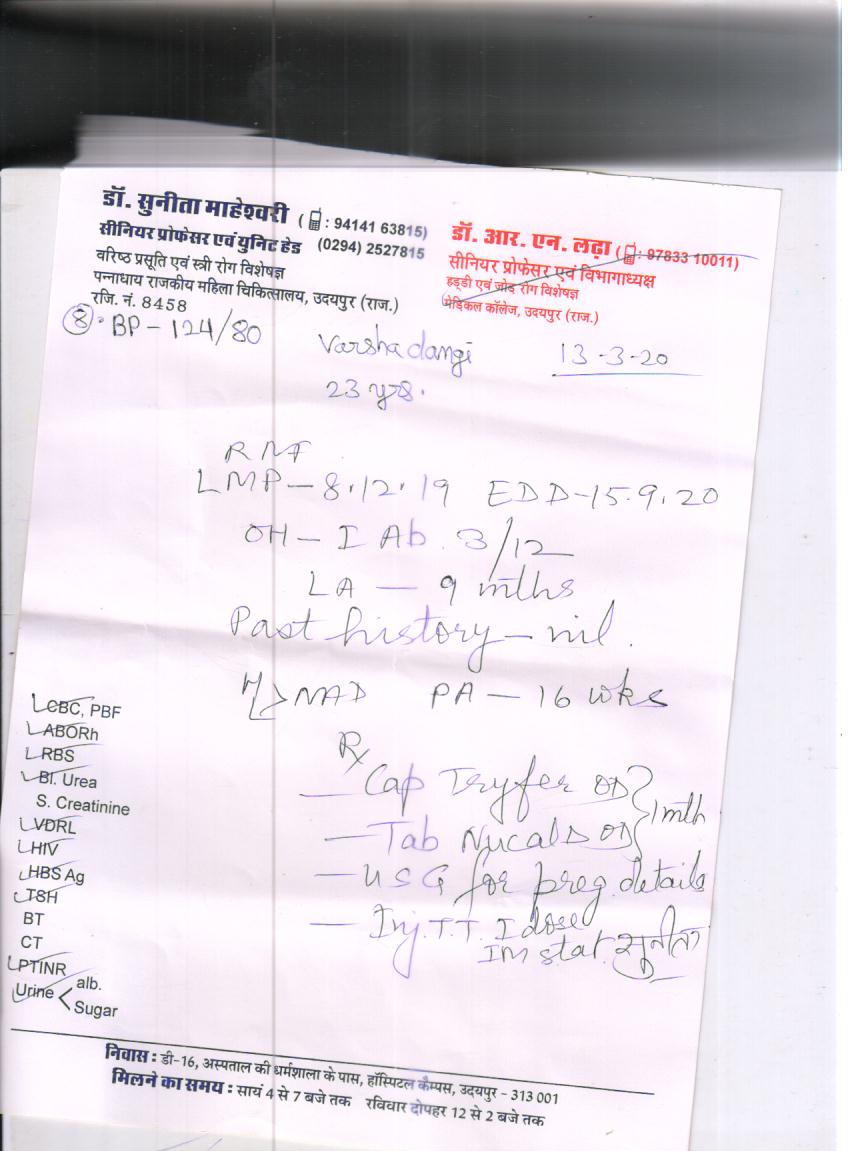 डॉ. सुनीता माहेश्वरी ( : 94141 63815)
सीनियर प्रोफेसर एवं युनिट हेड (0294) 2527815
वरिष्ठ प्रसूति एवं स्त्री रोग विशेषज्ञ
पन्नाधाय राजकीय महिला चिकित्सालय, उदयपुर (राज.)
रजि. नं. 8458
डॉ. आर. एन. लढ़ा ( : 97833 10011)
सीनियर प्रोफेसर एवं विभागाध्यक्ष
हड्डी एवं जोड़ रोग विशेषज्ञ
मेडिकल कॉलेज, उदयपुर (राज.)
8. BP - 124/80
Varsha dangi 13-3-20
23 yrs.
LMP - 8.12.19 EDD - 15.9.20
OH - I Ab. 3/12
LA - 9 mths
Past history - nil.
NAD PA - 16 wks
Rx
Cap Tryfer OD
Tab Nucal D OD } 1 mth
- USG for preg. details
- Inj. T.T. I dose
IM stat. सुनीता
CBC, PBF
ABORh
RBS
Bl. Urea
S. Creatinine
VDRL
HIV
HBS Ag
TSH
BT
CT
PTINR
Urine < alb.
Sugar
निवास : डी-16, अस्पताल की धर्मशाला के पास, हॉस्पिटल कैम्पस, उदयपुर - 313 001
मिलने का समय : सायं 4 से 7 बजे तक रविवार दोपहर 12 से 2 बजे तक